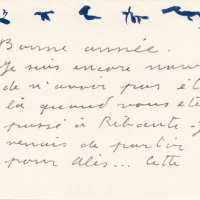 Bonne année.
Je suis encore
de n'avoir pas
là quand vous
passé à Ribaute
venais de partir
pour Alès... Cette